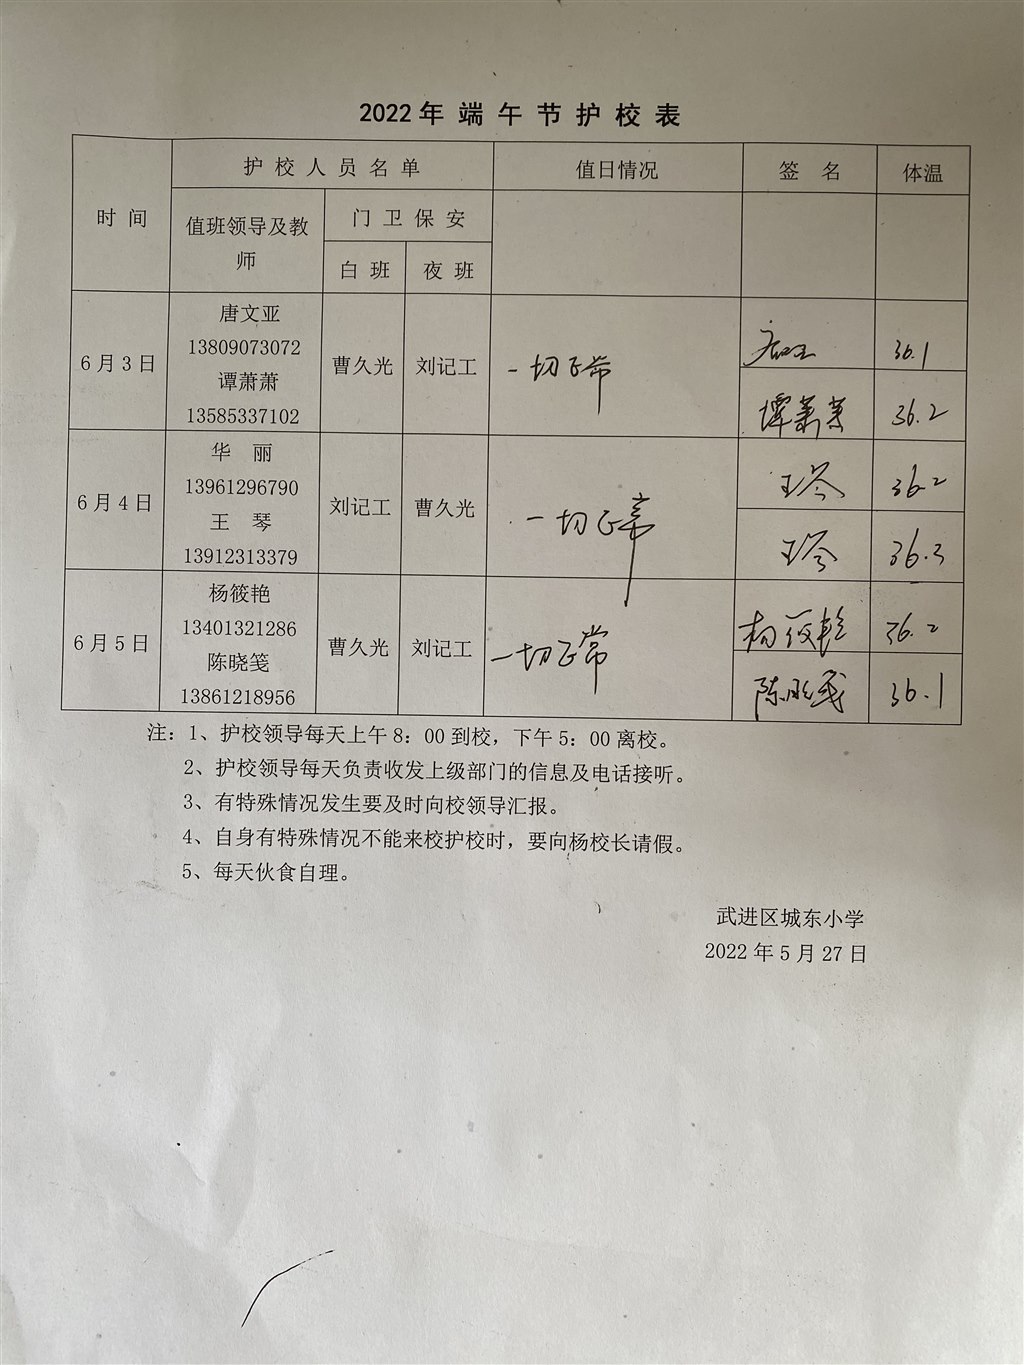 2022年 端 午 节 护 校 表
时 间
护 校 人 员 名 单
值日情况
签 名
体温
值班领导及教师
门 卫 保 安
白 班
夜 班
6月3日
唐文亚
13809073072
谭萧萧
13585337102
曹久光
刘记工
一切正常
36.1
谭萧萧
36.2
6月4日
华 丽
13961296790
王 琴
13912313379
刘记工
曹久光
一切正常
王琴
36.2
王琴
36.3
6月5日
杨筱艳
13401321286
陈晓笺
13861218956
曹久光
刘记工
一切正常
杨筱艳
36.2
陈晓笺
36.1
注：1、护校领导每天上午8：00到校，下午5：00离校。
2、护校领导每天负责收发上级部门的信息及电话接听。
3、有特殊情况发生要及时向校领导汇报。
4、自身有特殊情况不能来校护校时，要向杨校长请假。
5、每天伙食自理。
武进区城东小学
2022年5月27日